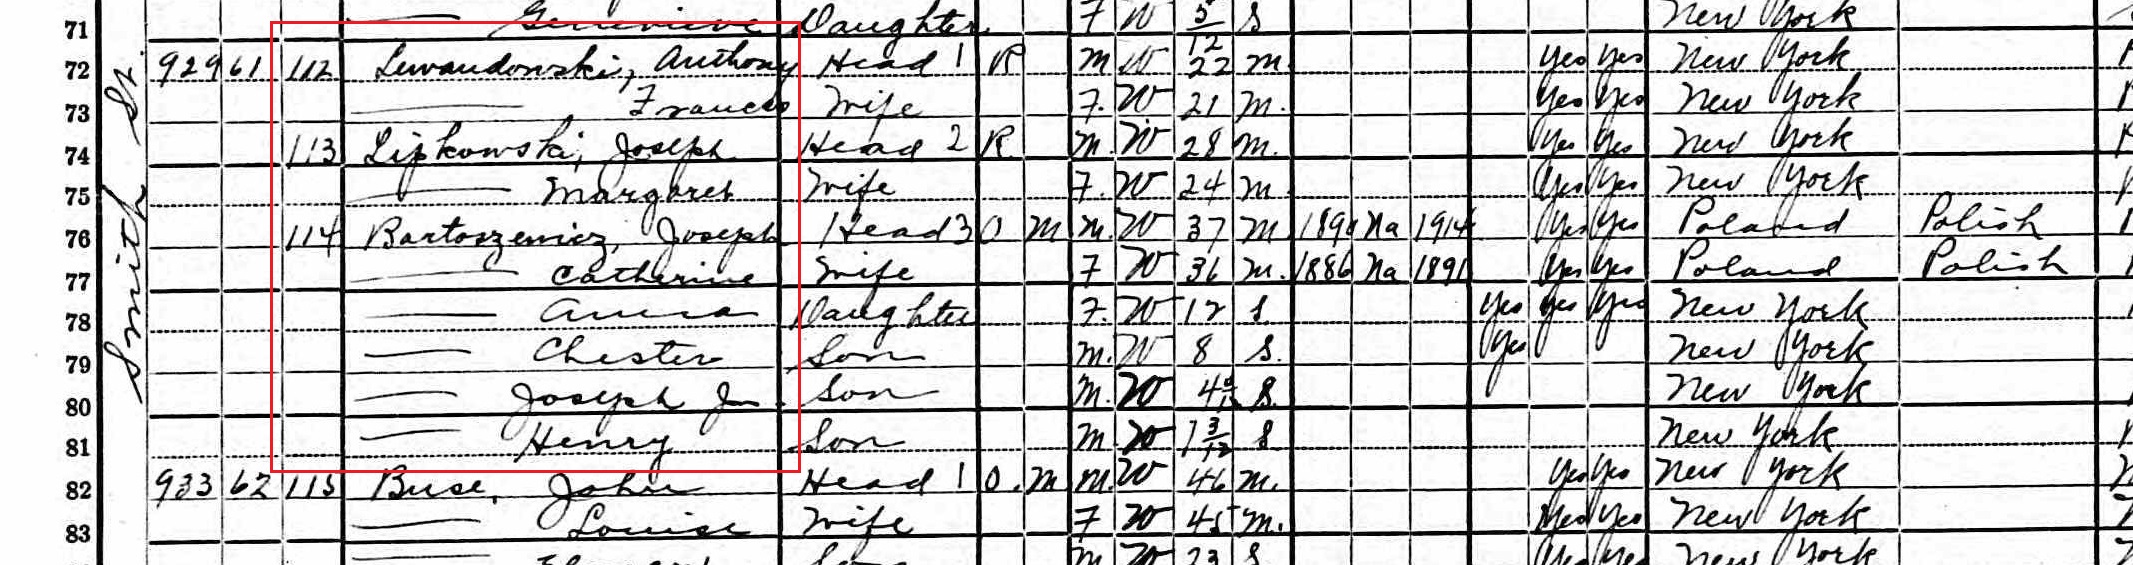 Smith St.
71 — Genevieve Daughter F W 5/12 S New York
72 929 61 112 Lewandowski, Anthony Head 1 R M W 22 M. Yes Yes New York
73 — Frances Wife F. W 21 M. Yes Yes New York
74 113 Lipkowski, Joseph Head 2 R. M. W 28 M. Yes Yes New York
75 — Margaret Wife F. W 24 M. Yes Yes New York
76 114 Bartoszewicz, Joseph Head 3 O M M. W 37 M. Na 1914 Yes Yes Poland Polish
77 — Catherine Wife F W 36 M. 1886 Na 1891 Yes Yes Poland Polish
78 — Daughter F. W 12 S Yes Yes Yes New York
79 — Chester Son M. W 8 S. Yes New York
80 — Joseph Jr. Son M. W S. New York
81 — Henry Son M W 1 3/12 S New York
82 933 62 115 Buse, John Head 1 O. M M. W 46 M. Yes Yes New York
83 — Louise Wife F W 45 M. Yes Yes New York
M W 23 S Yes Yes New York